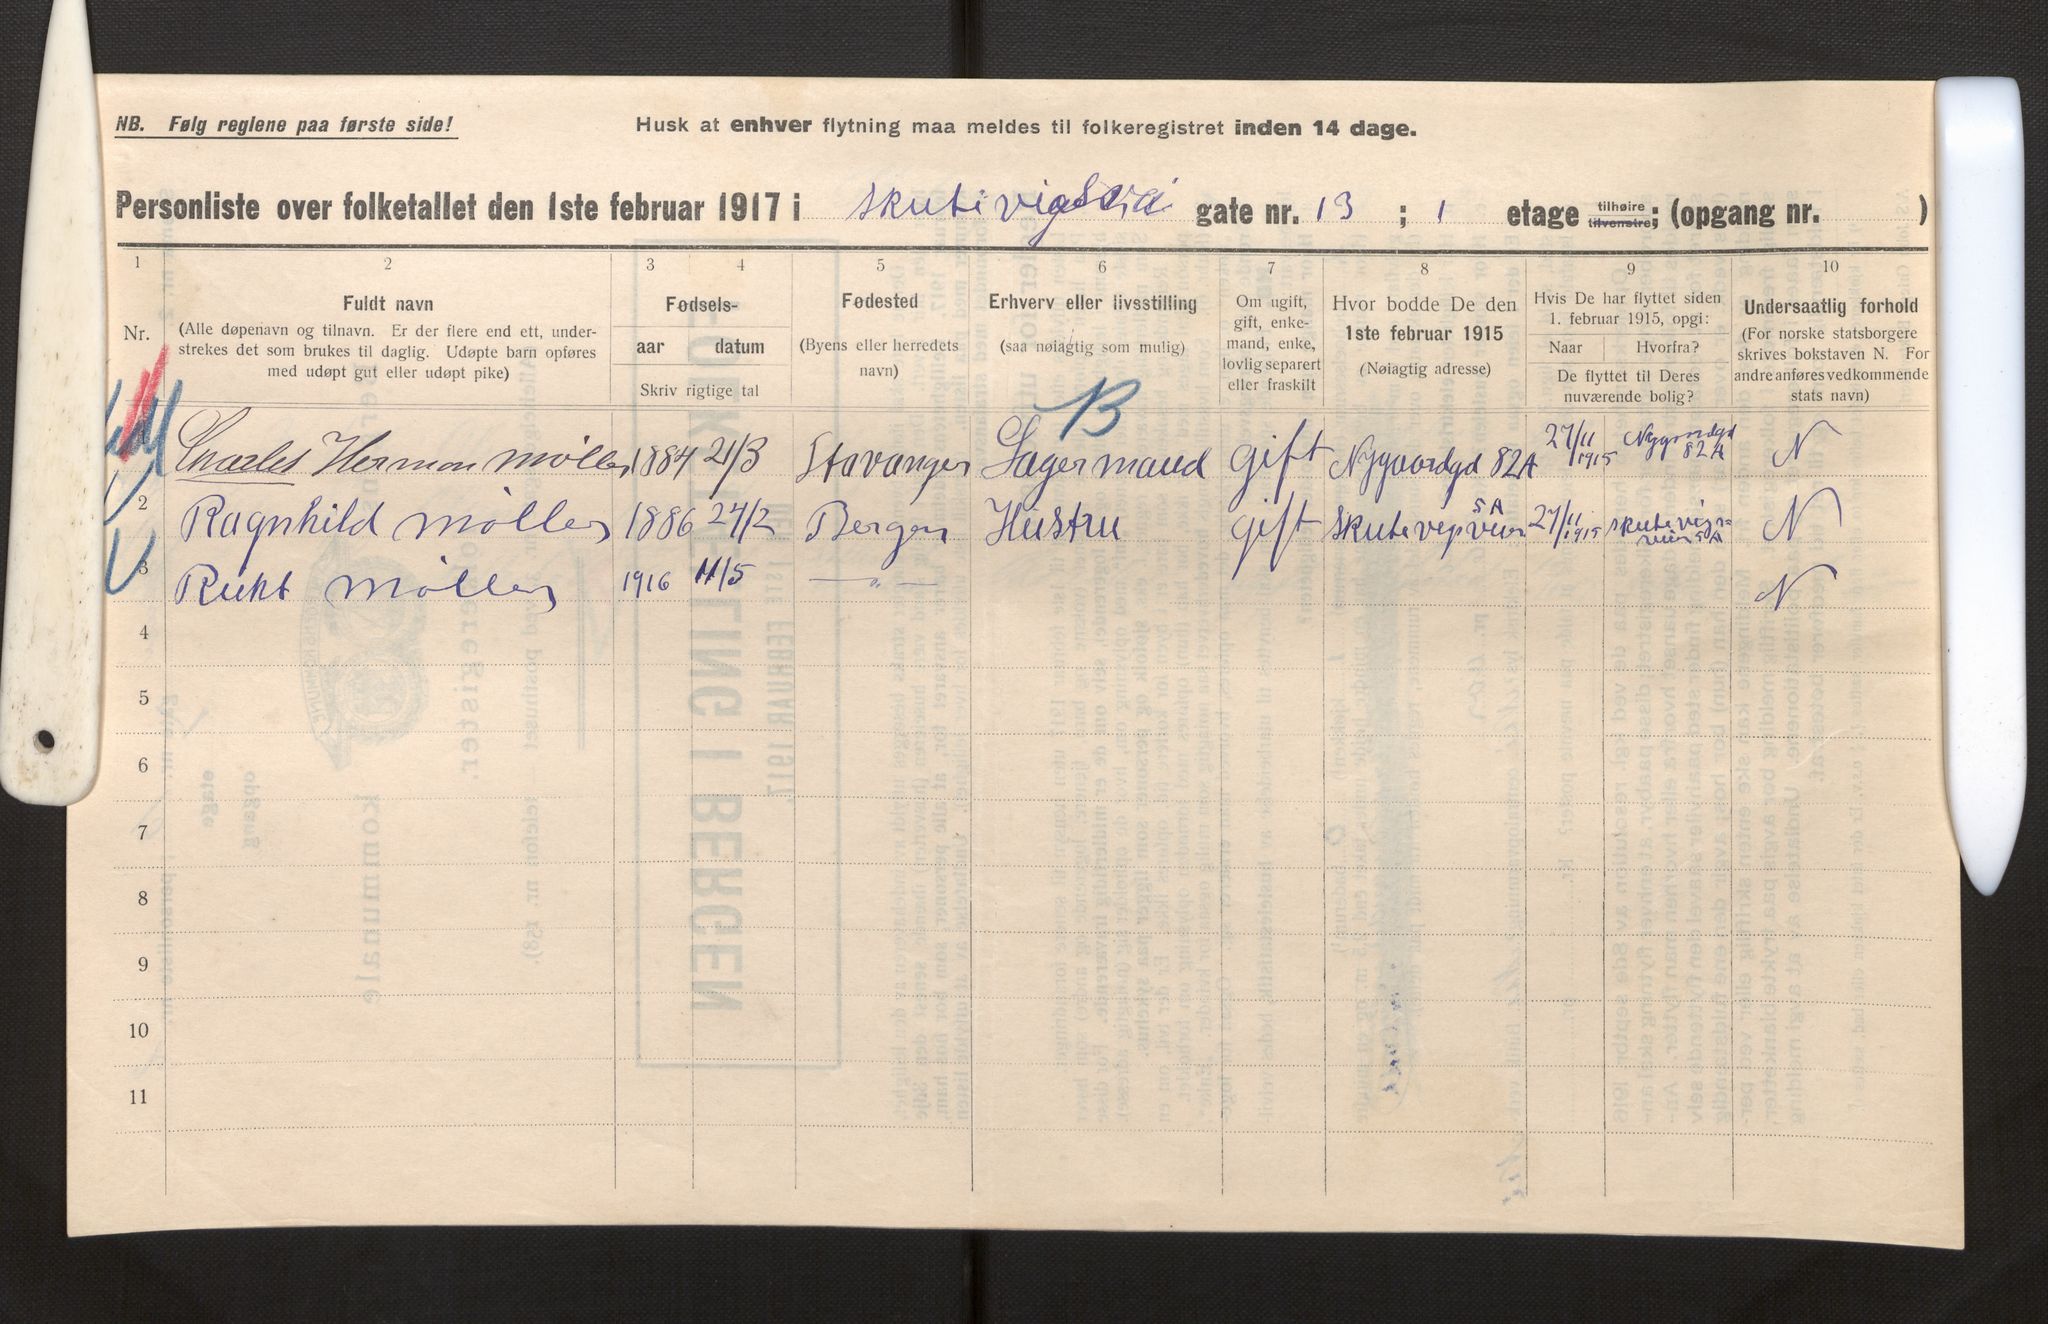 NB. Følg reglene paa første side!
Husk at enhver flytning maa meldes til folkeregistret inden 14 dage.
Personliste over folketallet den 1ste februar 1917 i Skutevigsvei gate nr. 13 ; 1 etage tilhøire tilvenstre; (opgang nr. )
1 2 3 4 5 6 7 8 9 10
Nr.
Fuldt navn
(Alle døpenavn og tilnavn. Er der flere end ett, under-
strekes det som brukes til daglig. Udøpte barn opføres
med udøpt gut eller udøpt pike)
Fødsels-
aar datum
Skriv rigtige tal
Fødested
(Byens eller herredets
navn)
Erhverv eller livsstilling
(saa nøiagtig som mulig)
Om ugift,
gift, enke-
mand, enke,
lovlig separert
eller fraskilt
Hvor bodde De den
1ste februar 1915
(Nøiagtig adresse)
Hvis De har flyttet siden
1. februar 1915, opgi:
Naar Hvorfra?
De flyttet til Deres
nuværende bolig?
Undersaatlig forhold
(For norske statsborgere
skrives bokstaven N. For
andre anføres vedkommende
stats navn)
B
1 Charles Herman Møller 1884 21/3 Stavanger Lagermand gift Nygaardgd 82A 27/11 1915 Nygaardgd 82A N
2 Ragnhild Møller 1886 24/2 Bergen Hustru gift Skutevigsveien 5A 27/11 1915 Skutevigsveien 5A N
3 Møller 1916 11/5 — „ — N
4
5
6
7
8
9
10
11